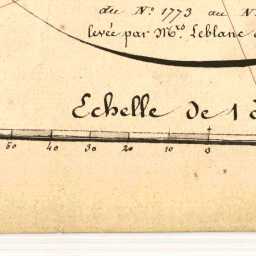 du No. 1773 au No.
levée par Mrs. Leblanc
Echelle de 1 à
50 40 30 20 10 0